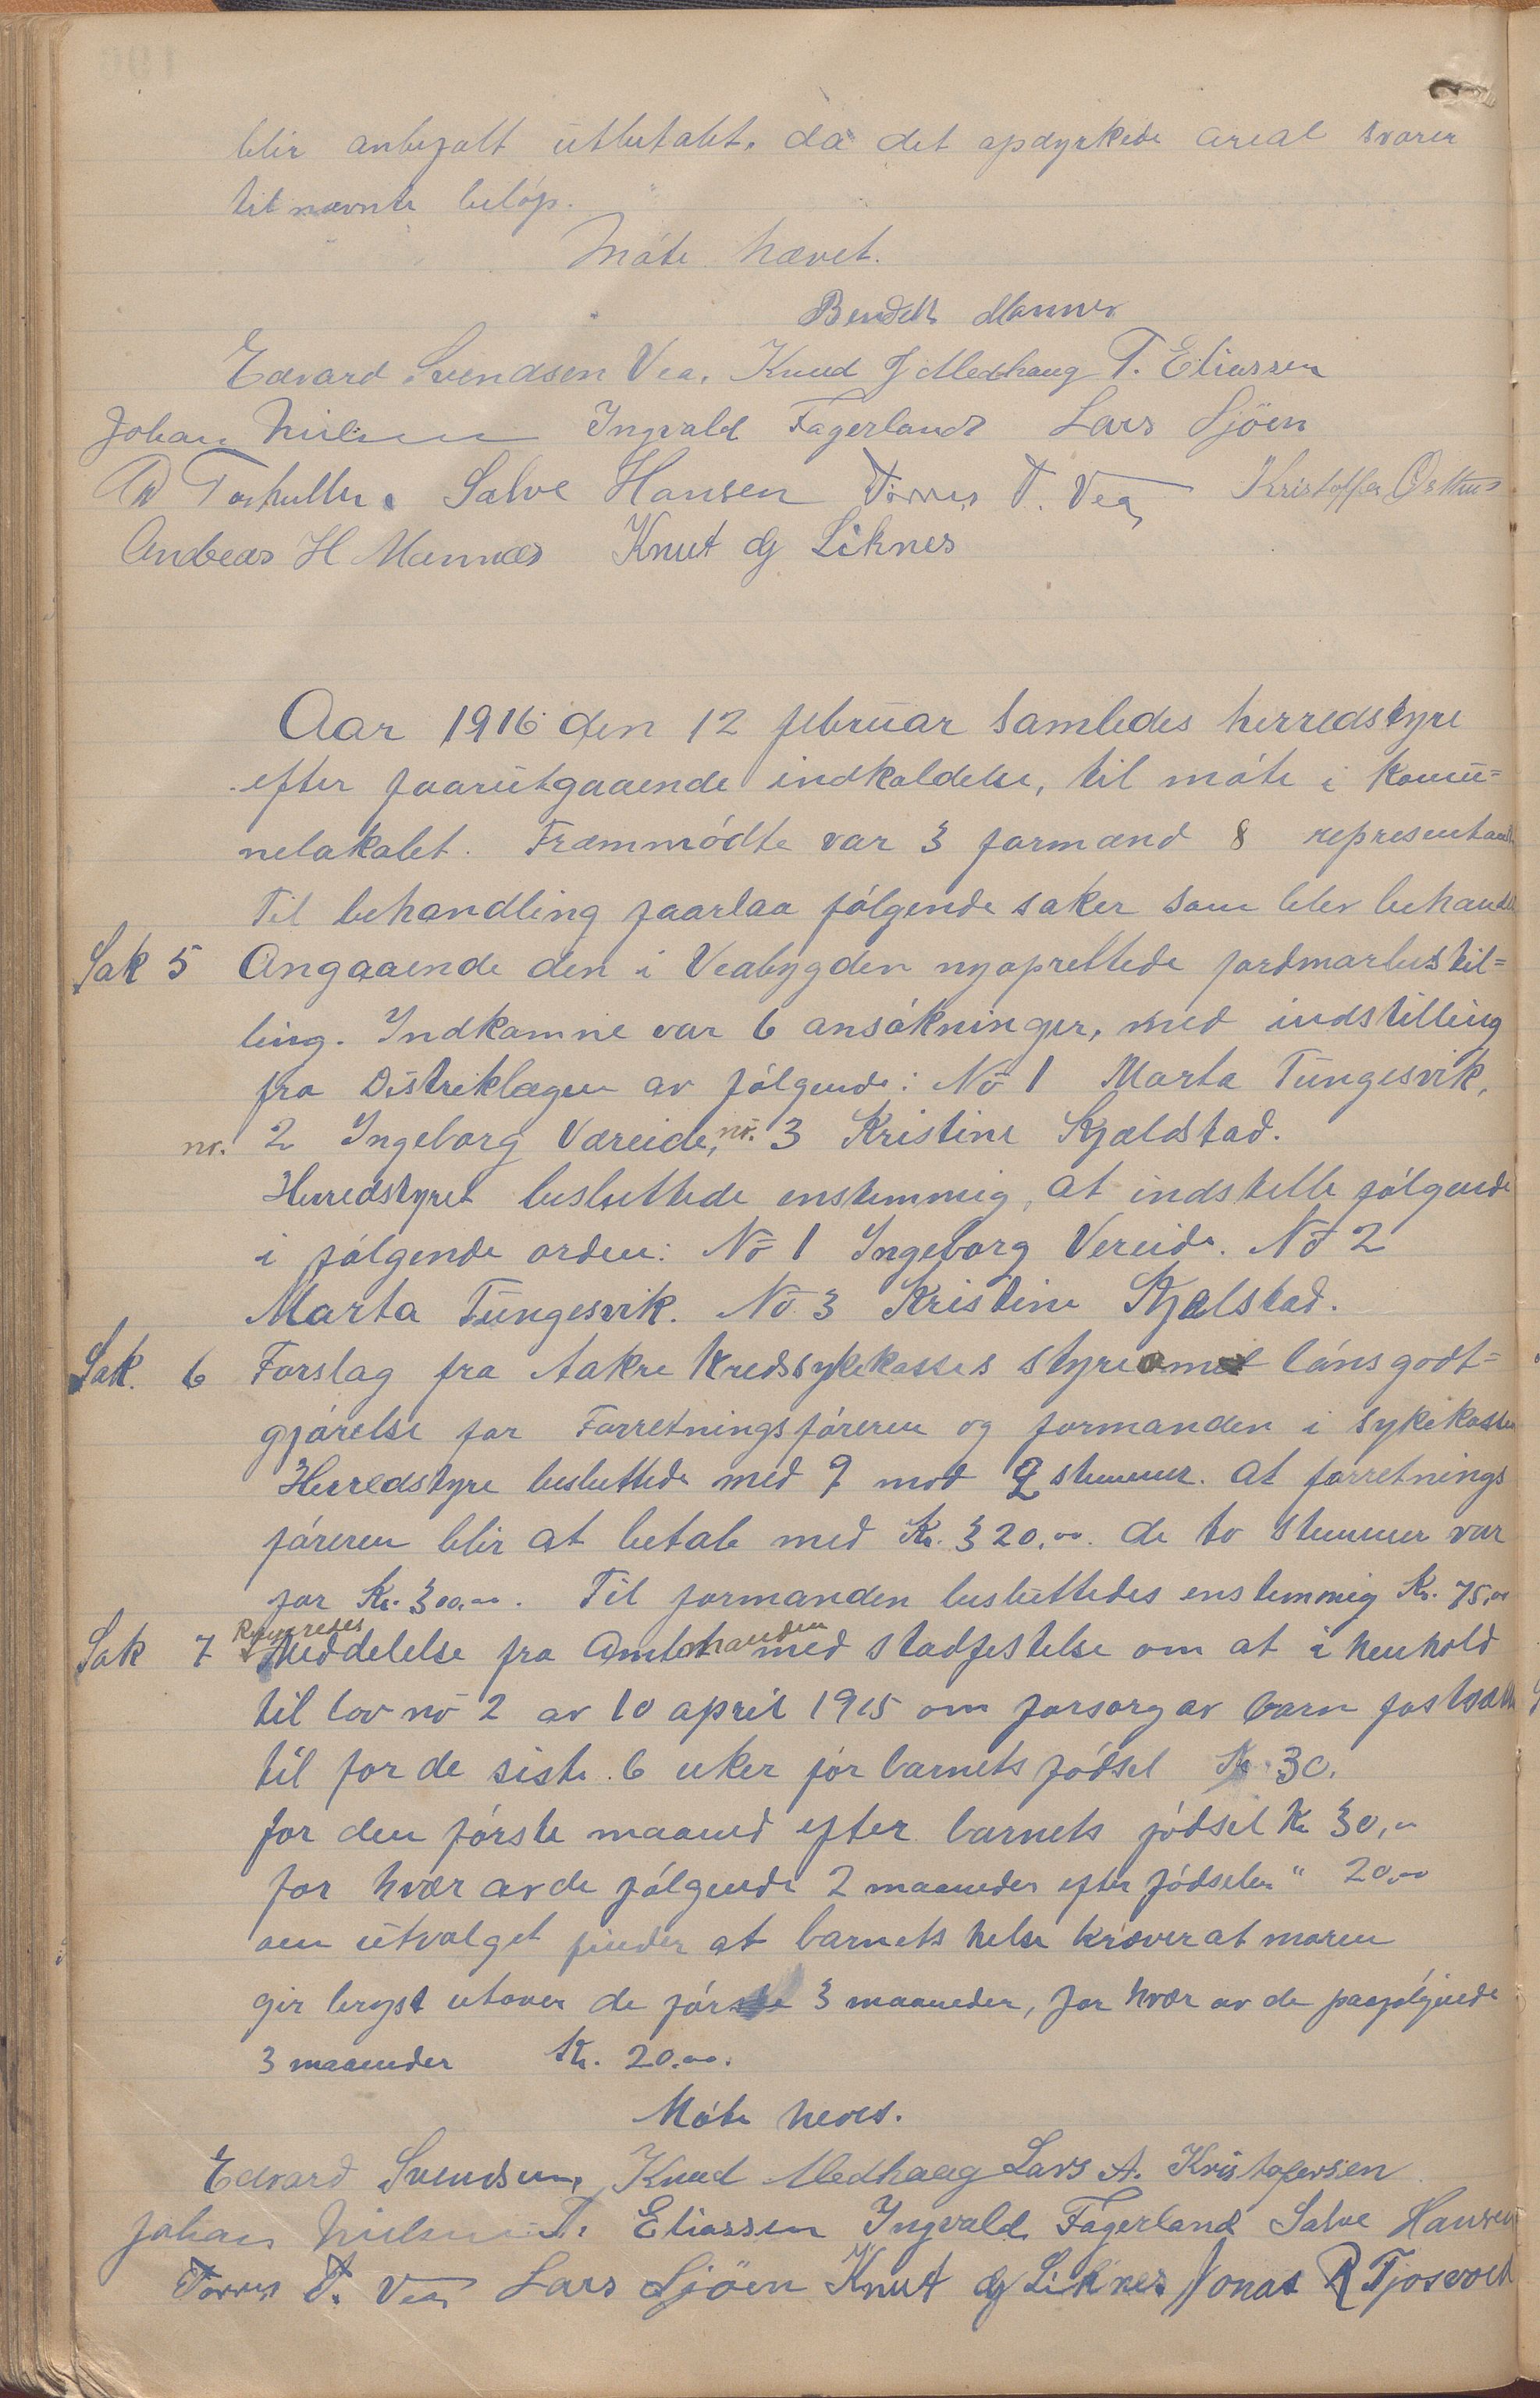 blir anbefalt utbetalt, da det opdyrkede areal svarer
til nævnte beløp.
Møte hævet.
Bendik Mannes
Edvard Svendsen Vea. Knud J Medhaug T. Eliassen
Johan Nielsen Ingvald Fagerland Lars Sjöen
Salve Hansen Torres T. Vea Kristoffer Østhus
Andreas H Mannes Knut G Liknes
Aar 1916 den 12 februar samledes herredstyre
efter foorutgaaende indkaldelse, til møte i komu=
nelokalet. Fremmødte var 3 formænd 8 representant
Til behandling foorlaa følgende saker som blev behandl
Sak 5 Angaaende den i Veabygden nyoprettede jordmorbestil=
ling. Indkomne var 6 ansøkninger, med indstilling
fra Distriklægen av følgende: No 1 Marta Tungesvik,
no. 2 Ingeborg Væreide, no. 3 Kristine Kjældstad.
Herredstyret besluttede enstemmig, at indstille følgende
i følgende orden: No 1 Ingeborg Vereide. No 2
Marta Tungesvik. No 3 Kristine Kjelstad.
Sak. 6 Forslag fra Aakre Kredssykekasses styre om lønsgodt=
gjørelse for Forretningsføreren og formanden i sykekassen
Herredstyre besluttede med 9 mod 2 stemmer. at forretnings
føreren blir at betale med Kr. 320.00. de to stemmer var
for Kr. 300.00. Til formanden besluttedes enstemmig Kr. 75,00
Sak 7 Refereredes Meddelelse fra Amtmanden med stadfestelse om at i henhold
til lov no 2 av 10 april 1915 om forsorg av barn fastsætte
til for de siste 6 uker før barnets fødsel Kr 30.
for den første maaned efter barnets fødsel Kr 30,00
for hvær av de følgende 2 maaneder efter fødselen " 20,00
om utvalget finder at barnets helse kræver at moren
gir bryst utover de første 3 maaneder, for hvær av de paafølgende
3 maaneder Kr. 20.00.
Møte heves.
Edvard Svendsen, Knud Medhaug Lars A. Kristofersen
Johan Nielsen T. Eliassen Ingvald Fagerland Salve Hansen
Torres T. Vea Lars Sjöen Knut G Liknes Jonas R Tjosvold